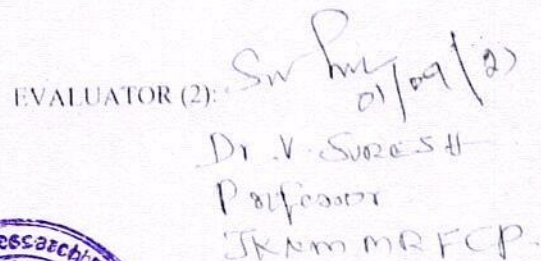 EVALUATOR (2):
01/09/2)
Dr. V. SURESH
Professor
JKKMMRFCP.